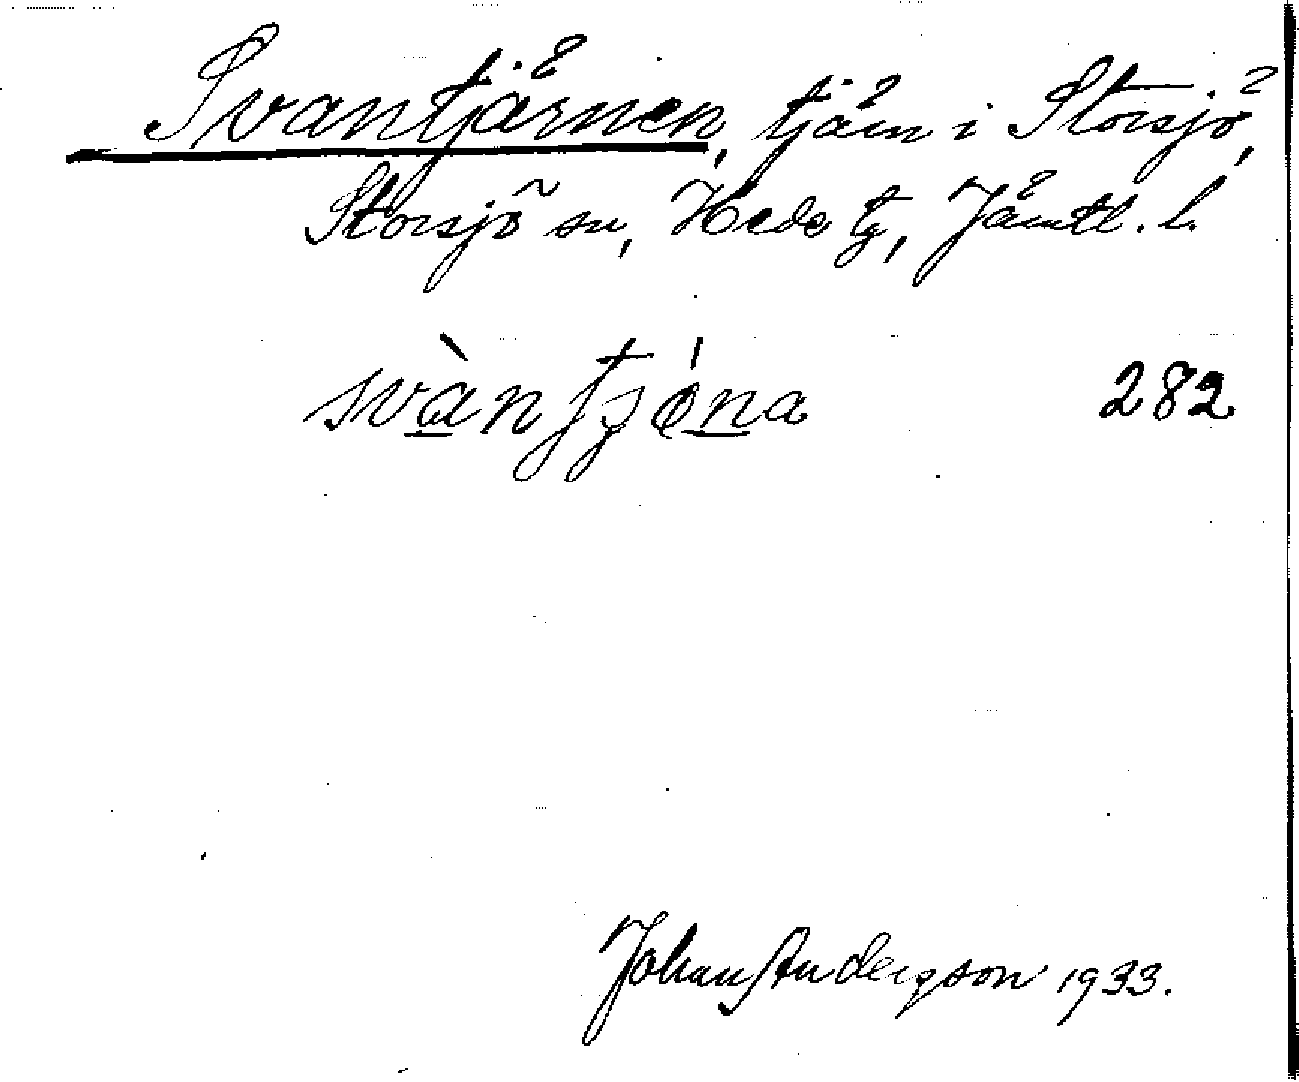 Svantjärnen, tjärn i Storsjö,
Storsjö sn, Hede tg, Jämtl. l.
282
Johan Andergson 1933.